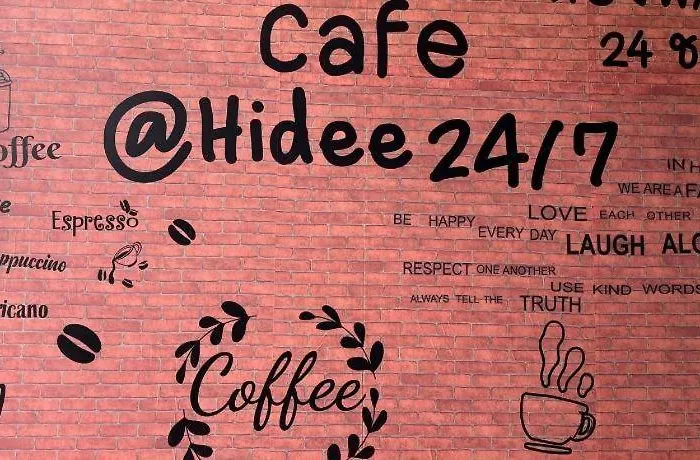 Cafe
24 ช
@Hidee 24/7
offee
Espresso
ppuccino
ricano
IN H
WE ARE A FA
BE HAPPY LOVE EACH OTHER
EVERY DAY LAUGH ALO
RESPECT ONE ANOTHER
USE KIND WORDS
ALWAYS TELL THE TRUTH
Coffee